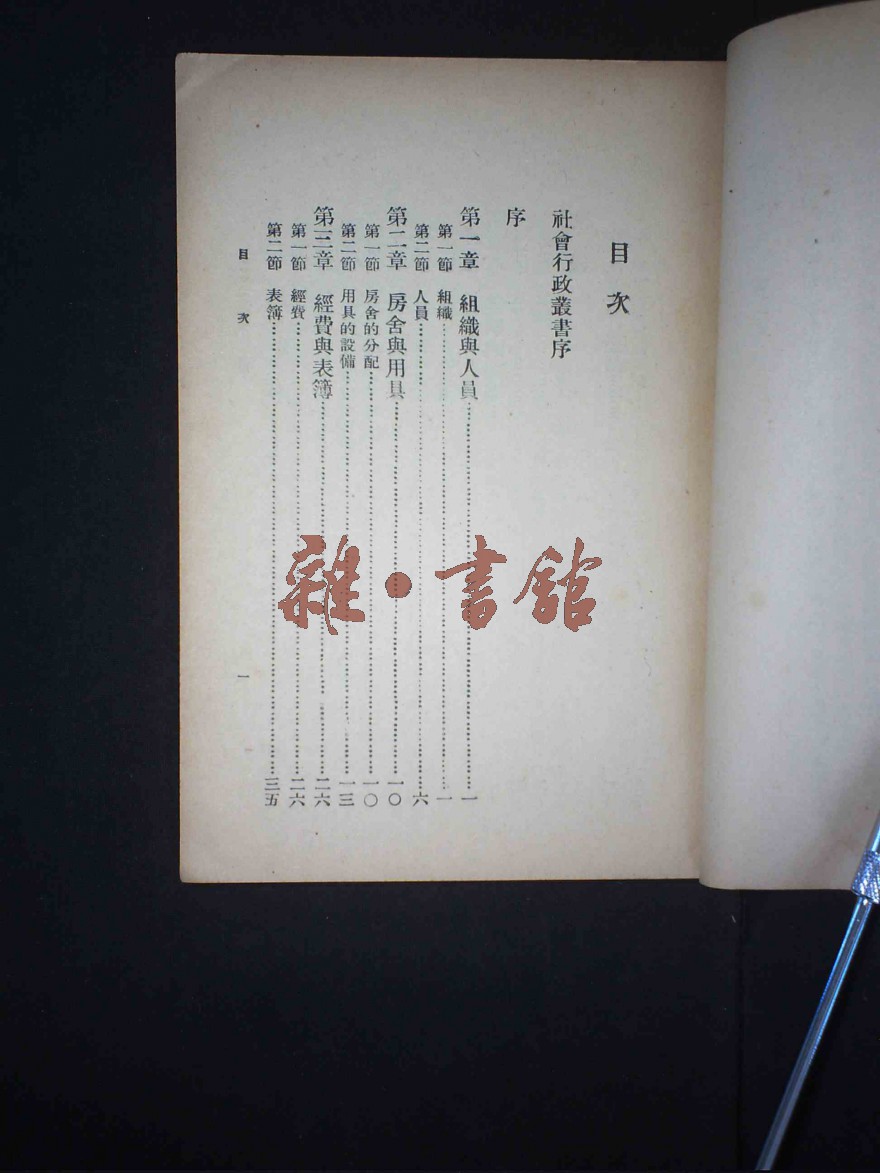 目次
社會行政叢書序
序
第一章 組織與人員……一
第一節 組織……一
第二節 人員……六
第二章 房舍與用具……一〇
第一節 房舍的分配……一〇
第二節 用具的設備……一三
第三章 經費與表簿……二六
第一節 經費……二六
第二節 表簿……三五
目次
一
雜·書館